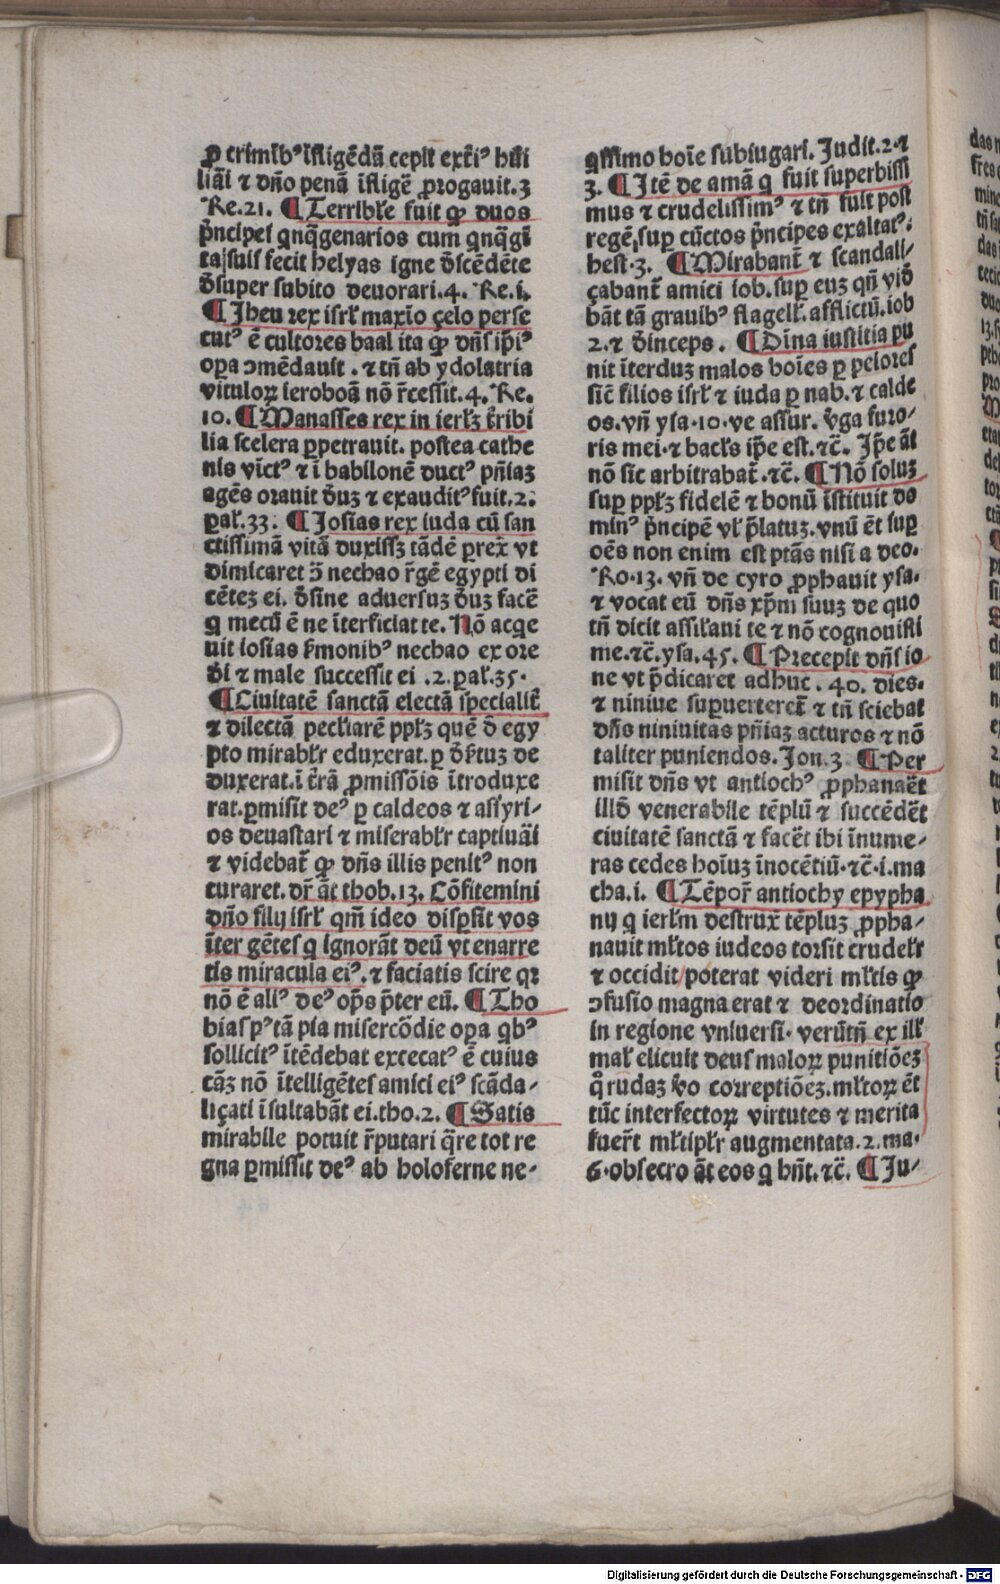 ꝓ crimĩbꝰ ĩfligẽdã cepit extꝰ hũi
liãi ⁊ dño penã ĩfligẽ ꝓrogauit.3
Re.21. ¶ Terribłe fuit ꝙ duos
p̃ncipes qnq̃genarios cum qnq̃gĩ
ta suis fecit helyas igne d̃scẽdẽte
d̃super subito deuorari.4. Re.i.
¶ Jheu rex isrł maxĩo çelo perse
cutꝰ ẽ cultores baal ita ꝙ dñs ip̃iꝰ
oꝑa ɔmẽdauit . ⁊ tñ ab ydolatria
vituloꝝ ieroboã nõ r̃cessit.4. Re.
10. ¶ Manasses rex in ierłꝫ t̃ribi
lia scelera ꝑpetrauit. postea cathe
nis vĩctꝰ ⁊ ĩ babilonẽ ductꝰ pñiaꝫ
agẽs orauit d̃uꝫ ⁊ exauditꝰ fuit.2.
ꝑał.33. ¶ Josias rex iuda cũ san
ctissimã vitã duxissꝫ tãdẽ ꝑrex̃ vt
dimicaret ɔ̃ nechao r̃gẽ egypti di
cẽteꝫ ei. d̃sine aduersuꝫ d̃uꝫ facẽ
q mecũ ẽ ne ĩterficiat te. Nõ acqe
uit iosias s̃monibꝰ nechao ex ore
d̃i ⁊ male successit ei .2.ꝑał.35.
¶ Ciuitatẽ sanctã electã specialit̃
⁊ dilectã pecłiarẽ ppłꝫ quẽ d̃ egy
pto mirabłr eduxerat.ꝑ d̃s̃tuꝫ de
duxerat.ĩ t̃rã ꝓmissõis ĩtroduxe
rat.ꝑmisit deꝰ ꝑ caldeos ⁊ assyri-
os deuastari ⁊ miserabłr captiuãi
⁊ videbat̃ ꝙ dñs illis penitꝰ non
curaret. dr̃ ãt thob.13. Cõfitemini
dño filij isrł qm̃ ideo disꝑsit vos
ĩter gẽtes q ignorãt deũ vt enarre
tis miracula eiꝰ. ⁊ faciatis scire qꝛ
nõ ẽ aliꝰ deꝰ op̃s p̃ter eũ. ¶ Tho
bias pꝰ tã pia misercõdie oꝑa qbꝰ
sollicitꝰ ĩtẽdebat excecatꝰ ẽ cuius
cãꝫ nõ ĩtelligẽtes amici eiꝰ scãda-
liçati ĩsultabãt ei.tho.2. ¶ Satis
mirabile potuit r̃putari q̃re tot re
gna ꝑmissit deꝰ ab holoferne ne-
qssimo hoĩe subiugari. Judit.2.⁊
3. ¶ Jtẽ de amã q fuit superbissi
mus ⁊ crudelissimꝰ ⁊ tñ fuit post
regẽ suꝑ cũctos p̃ncipes exaltatꝰ.
hest.3. ¶ Mirabant̃ ⁊ scandali-
çabant̃ amici iob.suꝑ euꝫ qñ vid̃
bãt tã grauibꝰ flagelł.afflictũ.iob
2.⁊ d̃inceps. ¶ Dĩna iustitia pu
nit ĩterduꝫ malos hoĩes ꝑ peiores
sic̃ filios isrł ⁊ iuda ꝑ nab.⁊ calde
os.vñ ysa.10.ve assur. v̓ga furo-
ris mei.⁊ bacłs ip̃e est.⁊c̃. Jp̃e ãt
nõ sic arbitrabat̃.⁊c̃. ¶ Nõ soluꝫ
suꝑ ppłꝫ fidelẽ ⁊ bonũ ĩstituit do
minꝰ p̃ncipẽ vł p̃latuꝫ.vnũ ẽt suꝑ
oẽs non enim est ptãs nisi a deo.
Ro.13. vñ de cyro ꝓphauit ysa.
⁊ vocat eũ dñs xp̃m suuꝫ de quo
tñ dicit assiłaui te ⁊ nõ cognouisti
me.⁊c̃.ysa.45. ¶ Precepit dñs io
ne vt p̃dicaret adhuc .40. dies.
⁊ niniue suꝑuerteret̃ ⁊ tñ sciebat
dñs niniuitas pñiaꝫ acturos ⁊ nõ
taliter puniendos. Jon.3 ¶ Per
misit dñs vt antiochꝰ ꝓphanaẽt
illd̃ venerabile tẽplũ ⁊ succẽdẽt
ciuitatẽ sanctã ⁊ facẽt ibi ĩnume-
ras cedes hoĩuꝫ ĩnocẽtiũ.⁊c̃.i.ma
cha.i. ¶ Tẽpor̃ antiochy epypha
nij q ierłm destrux̃ tẽpluꝫ ꝓpha-
nauit młtos iudeos torsit crudełr
⁊ occidit poterat videri młtis ꝙ
ɔfusio magna erat ⁊ deordinatio
in regione vniuersi. verũtñ ex ilł
mał elicuit deus maloꝝ punitiõeꝫ
q̃rudaꝫ v̓o correptiõeꝫ.młtoꝝ ẽt
tũc interfectoꝝ virtutes ⁊ merita
fuer̃t młtipłr augmentata.2.ma.
6.obsecro ãt eos q hñt.⁊c̃. ¶ Ju-
Digitalisierung gefördert durch die Deutsche Forschungsgemeinschaft - DFG